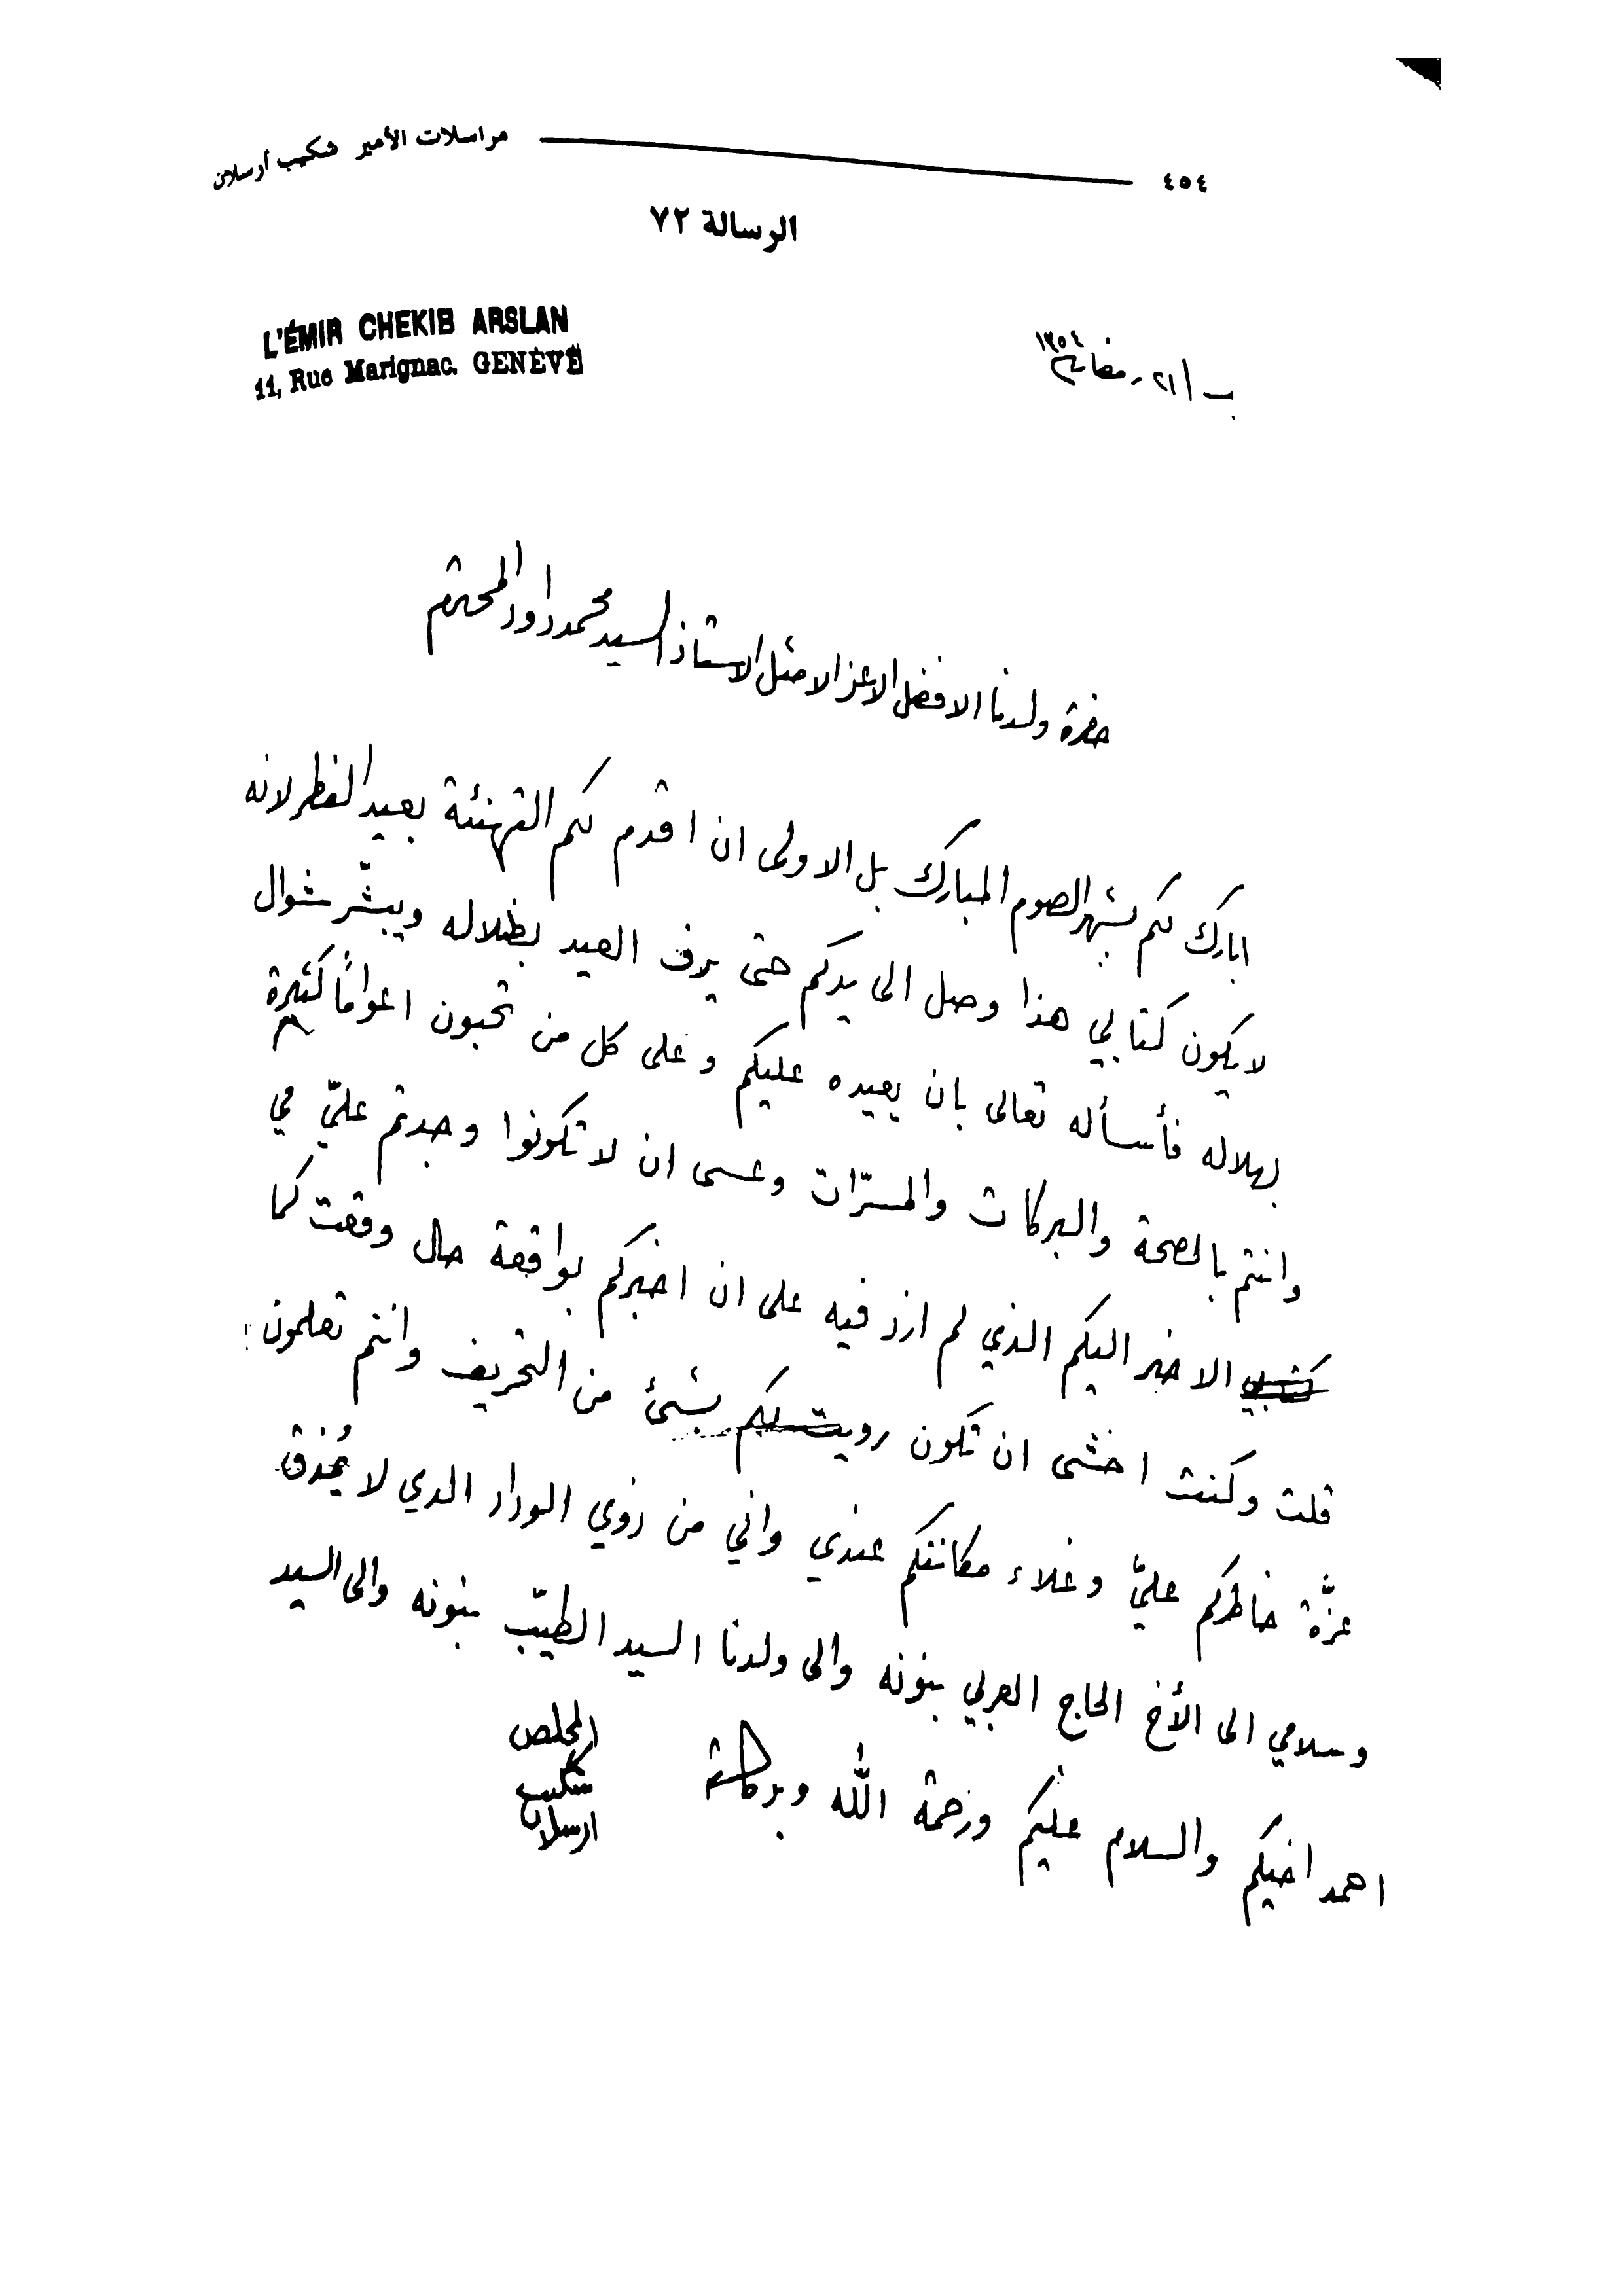 ٤٥٤ مراسلات الأمير شكيب أرسلان
الرسالة ٧٢
L'ÉMIR CHEKIB ARSLAN
11, Rue Marignac. GENÈVE
ب ٢١ رمضان ١٣٥٤
حضرة ولدنا الافضل الاعز الامثل الاستاذ السيد محمد داود المحترم
ابارك لكم بشهر الصوم المبارك بل الاولى ان اقدم لكم التهنئة بعيد الفطر لانه
لا يكون كتابي هذا وصل الى يدكم حتى يرف العيد بظلاله ويبشّر شوال
بهلاله فأسأله تعالى بان يعيده عليكم وعلى كل من تحبون اعواماً كثيرة
وانتم بالصحة والبركات والمسرّات وعسى ان لا تكونوا وجدتم عليّ في
كتابي الاخير اليكم الذي لم ازد فيه على ان اخبركم بواقعة حال وقعت كما
قلت وكنت اخشى ان تكون رويت لكم بشئ من التحريف وانتم تعلمون
عزّة خاطركم عليّ وغلاء مكانتكم عندي واني من ذوي الوداد الذي لا يُمذق
وسلامي الى الأخ الحاج العربي بنونه والى ولدنا السيد الطيّب بنونه والى السيد
احمد اخيكم والسلام عليكم ورحمة الله وبركاته
المخلص
شكيب
ارسلان